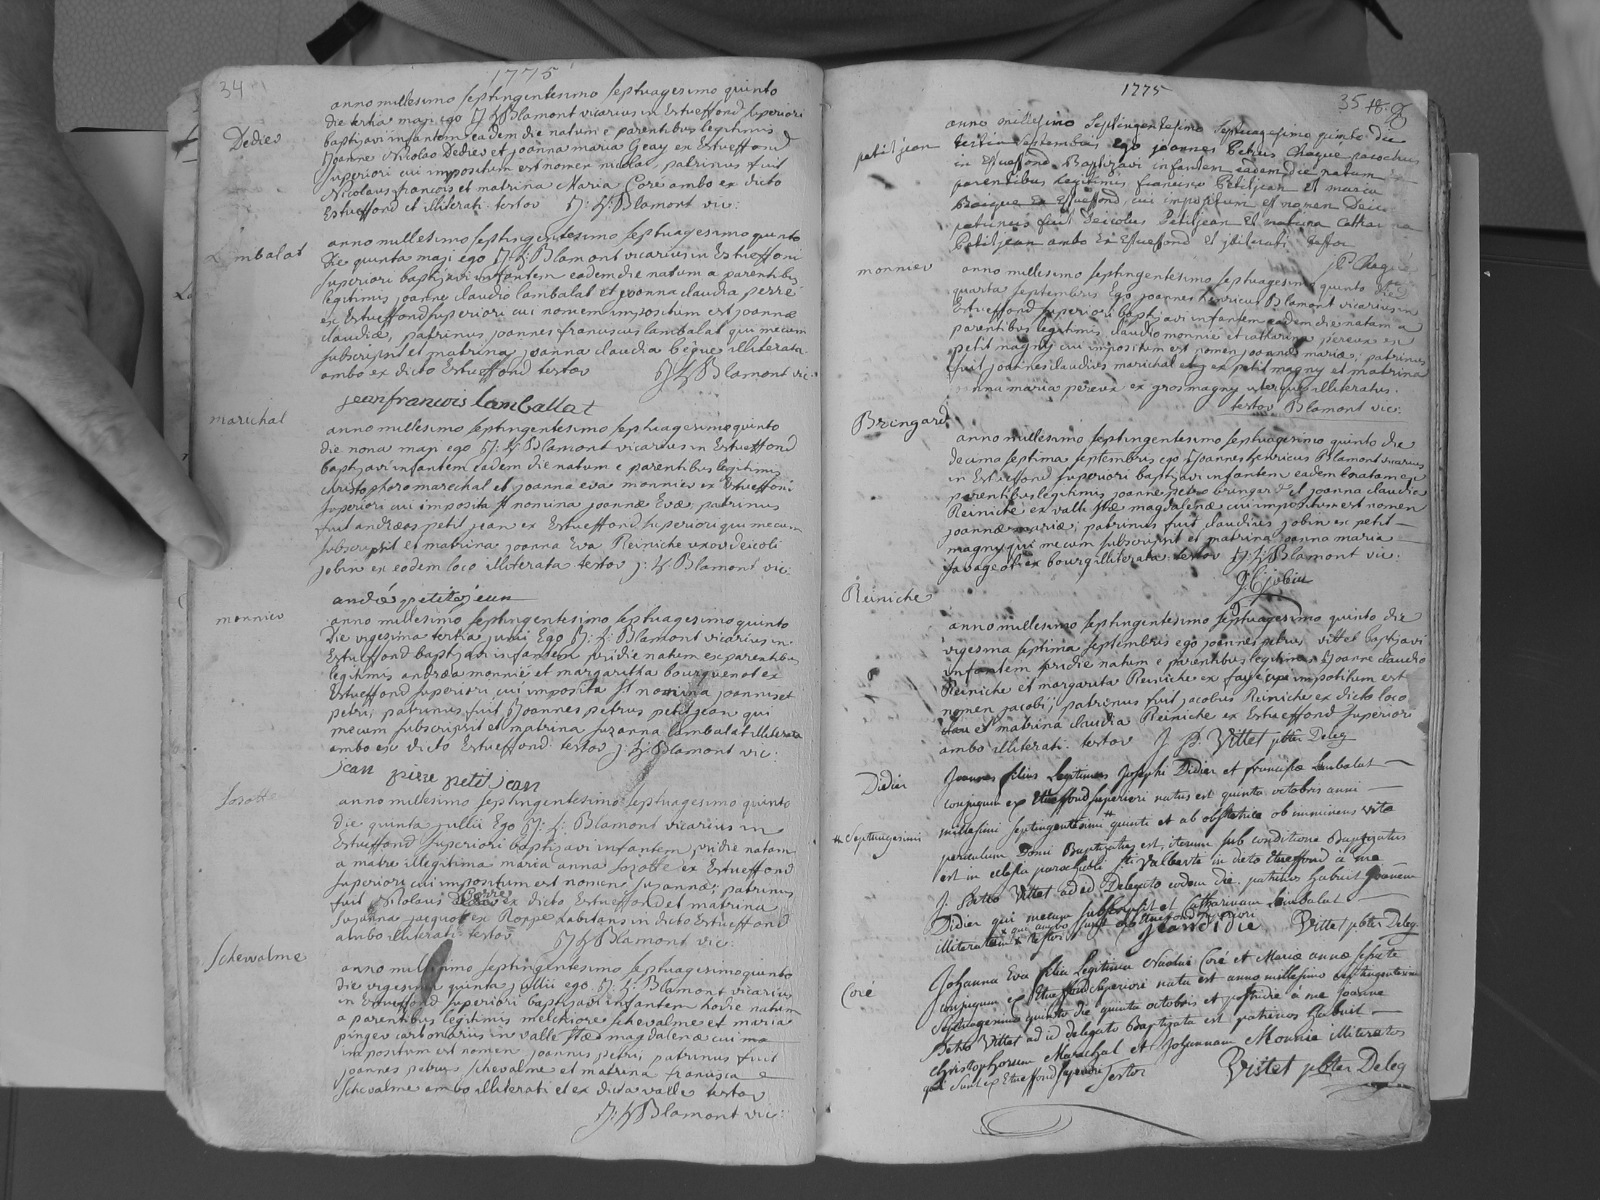 34
1775
Dedier
anno millesimo septingentesimo septuagesimo quinto
die tertia maji ego J: H Blamont vicarius in Estueffond superiori
baptizavi infantem eadem die natum e parentibus legitimis
Joanne Nicolao Dedier et joanna maria Geay ex Estueffond
superiori cui impositum est nomen nicolai, patrinus fuit
Nicolaus francois et matrina Maria Core ambo ex dicto
Estueffond et illiterati testor J: H Blamont vic:
Lambalat
anno millesimo septingentesimo septuagesimo quinto
Die quinta maji ego J: H: Blamont vicarius in Estueffond
superiori baptizavi infantem eadem die natum a parentibus
legitimis joanne claudio lambalat et joanna claudia perre
ex Estueffond superiori cui nomen impositum est joannæ
claudiæ, patrinus joannes franciscus lambalat qui mecum
subscripsit et matrina joanna claudia beque illiterata
ambo ex dicto Estueffond testor J: H Blamont vic:
jean francois lamballat
marechal
anno millesimo septingentesimo septuagesimo quinto
die nona maji ego J: H Blamont vicarius in Estueffond
baptizavi infantem eadem die natum e parentibus legitimis
christophoro marechal et joanna eva monnier ex Estueffond
superiori cui imposita st nomina joannæ Evæ, patrinus
fuit andræas petit jean ex Estueffond superiori qui mecum
subscripsit et matrina joanna Eva Reiniche uxor deicoli
jobin ex eodem loco illiterata testor J: H Blamont vic:
andré petitjean
monnier
anno millesimo septingentesimo septuagesimo quinto
Die vigesima tertia junii Ego J: H: Blamont vicarius in
Estueffond baptizavi infantem pridie natum ex parentibus
legitimis andræa monnié et margaritha bourquenot ex
Estueffond superiori cui imposita st nomina joannis et
petri, patrinus fuit Joannes petrus petitjean qui
mecum subscripsit et matrina suzanna lambalat illiterata
ambo ex dicto Estueffond testor J: H Blamont vic:
jean pierre petit jean
Sozotte
anno millesimo septingentesimo septuagesimo quinto
die quinta jullii Ego J: H: Blamont vicarius in
Estueffond superiori baptizavi infantem pridie natam
a matre illegitima maria anna Sozotte ex Estueffond
superiori cui impositum est nomen suzannæ; patrinus
fuit Nicolaus Corre ex dicto Estueffond et matrina
suzanna jacquot ex Roppe habitans in dicto Estueffond
ambo illiterati testor J: H Blamont vic:
Schevalme
anno millesimo septingentesimo septuagesimo quinto
die vigesima quinta jullii ego J: H: Blamont vicarius
in Estueffond superiori baptizavi infantem hodie natum
a parentibus legitimis melchiore schevalme et maria
pinger carbonarius in valle stæ magdalenæ cui
impositum est nomen joannis petri, patrinus fuit
joannes petrus schevalme et matrina francisca
schevalme ambo illiterati et ex dicta valle testor
J: H Blamont vic:
1775
35
petit jean
anno millesimo septingentesimo septuagesimo quinto die
tertia septembris ego joannes Petrus parochus
in Estueffond Baptizavi infantem eadem die natum
parentibus legitimis francisco Petitjean et maria
Estueffond, cui impositum est nomen
patrinus fuit Petitjean et matrina
Petitjean ambo ex Estueffond et illiterati testor
monnier
anno millesimo septingentesimo septuagesimo quinto die
quarta septembris Ego joannes henricus Blamont vicarius in
Estueffond superiori baptizavi infantem eadem die natam a
parentibus legitimis claudio monnié et catharina pereux ex
petit magny cui impositum est nomen joannæ mariæ; patrinus
fuit joannes claudius marichal ex petit magny et matrina
anna maria pereux ex grosmagny uterque illiteratus.
testor Blamont vic:
Bringard
anno millesimo septingentesimo septuagesimo quinto die
decima septima septembris ego Joannes henricus Blamont vicarius
in Estueffond superiori baptizavi infantem eadem natam ex
parentibus legitimis joanne petro bringard et joanna claudia
Reiniche ex valle stæ magdalenæ cui impositum est nomen
joannæ mariæ; patrinus fuit claudius jobin ex petit
magny qui mecum subscripsit et matrina joanna maria
savageot ex bourg illiterata testor J: H: Blamont vic:
Reiniche
anno millesimo septingentesimo septuagesimo quinto die
vigesima septima septembris ego joannes petrus vittet baptizavi
infantem pridie natum e parentibus legitimis Joanne claudio
Reiniche et margarita Reiniche ex impositum est
nomen jacobi; patrinus fuit jacobus Reiniche ex dicto loco
et matrina claudia Reiniche ex Estueffond superiori
ambo illiterati testor J P. Vittet pbter Deleg
Didier
Joannes filius Legitimus Josephi Didier et franciscæ Lambalat
conjugum ex Etueffond superiori natus est quinta octobris anni
millesimi septingentesimi # quinti et ab obstetrice ob imminens vitæ
# Septuagesimi
periculum Domi Baptizatus est, iterum sub conditione Baptizatus
est in ecclesia parochiali sti Valberti in dicto Etueffond à me
J. Petro Vittet ad id Delegato eodem die patrinos habuit Joannem
Didier qui mecum subscripsit et Catharinam Lambalat
illiteratam x testor x qui ambo sunt ex Etueffond superiori
jean didie Vittet pbter Deleg
Coré
Johanna Eva filia Legitima Nicolai Coré et Mariæ annæ
conjugum ex Etueffond superiori nata est anno millesimo septingentesimo
septuagesimo quinto die quinta octobris et postridie à me Joanne
Petro Vittet ad id delegato Baptizata est patrinos habuit
christophorum Marechal et Johannam Monnie illiteratos
qui sunt ex Etueffond superiori Testor Vittet pbter Deleg